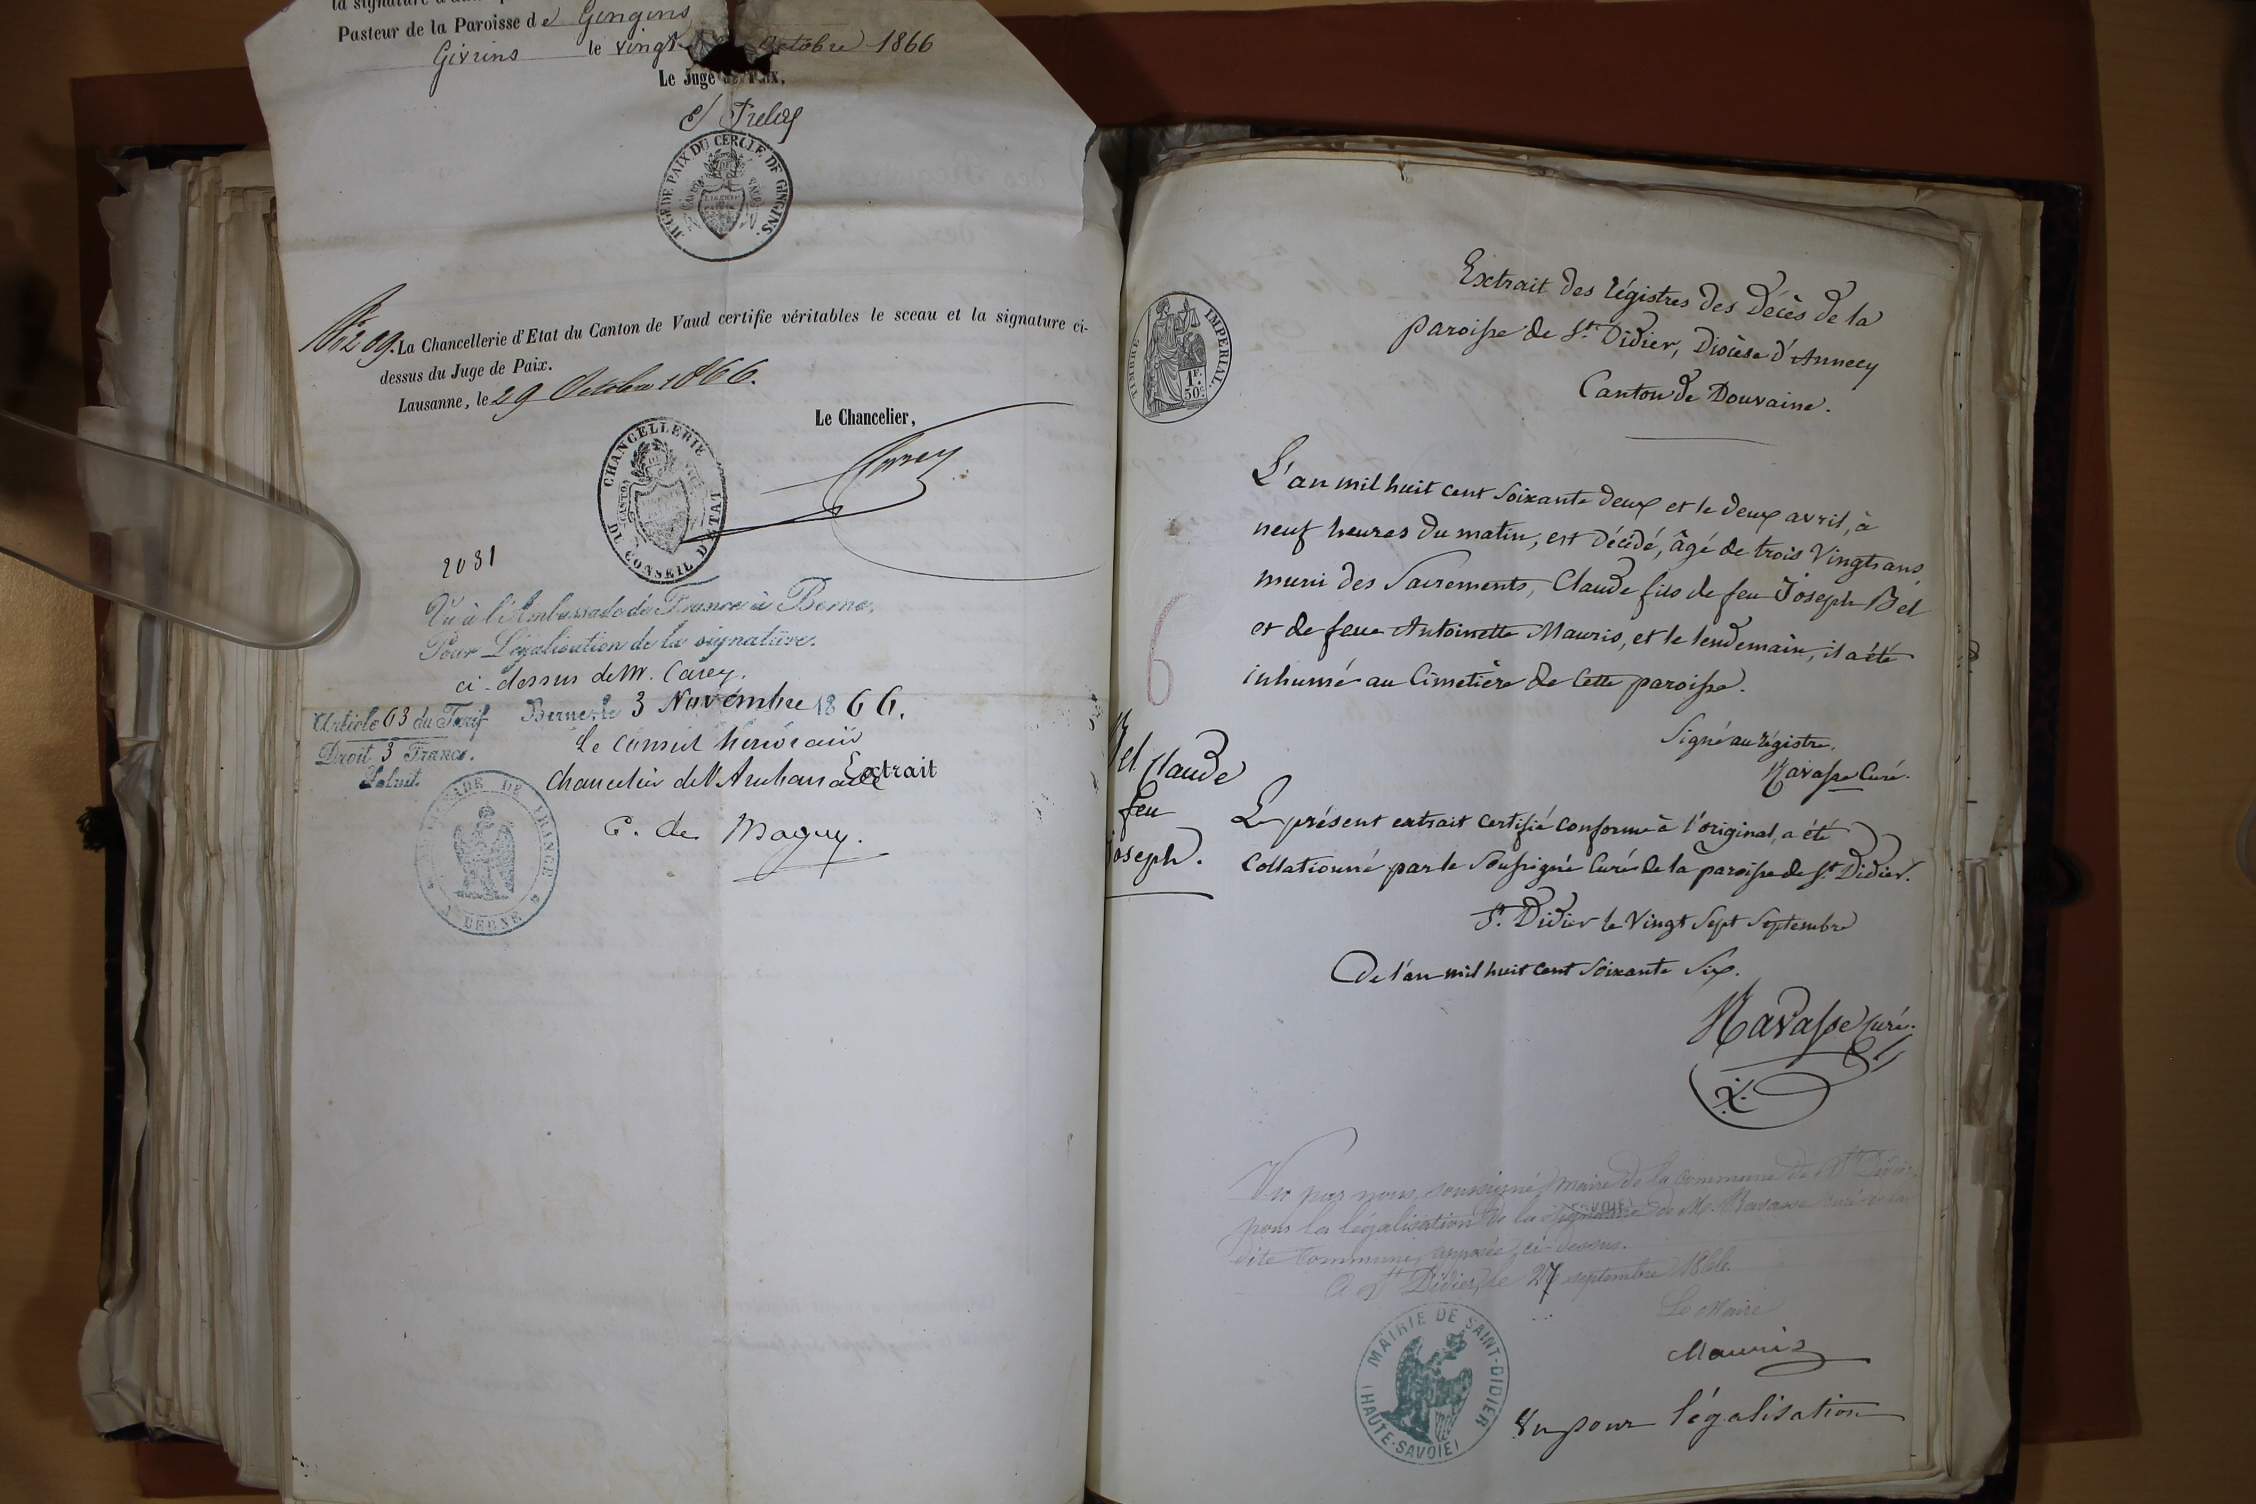 Pasteur de la Paroisse de Gingins
Givrins le vingt octobre 1866
Le Juge de Paix,
JUGE DE PAIX DU CERCLE DE GINGINS.
La Chancellerie d'Etat du Canton de Vaud certifie véritables le sceau et la signature ci-
dessus du Juge de Paix.
Lausanne, le 29 Octobre 1866.
Le Chancelier,
Carey
CHANCELLERIE DU CONSEIL D'ETAT
2031
Vu à l'Ambassade de France à Berne,
Pour Légalisation de la signature.
ci-dessus de M. Carey.
Article 63 du Tarif
Berne, le 3 Novembre 1866.
Droit 3 Francs.
Le Consul honoraire
Chancelier de l'Ambassade
Extrait
AMBASSADE DE FRANCE A BERNE
TIMBRE IMPÉRIAL.
1F. 50c.
Extrait des régistres des décès de la
paroisse de St. Didier, Diocèse d'Annecy
Canton de Douvaine.
L'an mil huit cent soixante deux et le deux avril, à
neuf heures du matin, est décédé, âgé de trois vingts ans,
muni des Sacrements, Claude fils de feu Joseph Bel
et de feue Antoinette Mauris, et le lendemain, il a été
inhumé au Cimetière de cette paroisse.
6
Signé au régistre.
Navasse Curé.
Bel Claude
feu
Joseph.
Le présent extrait certifié conforme à l'original, a été
collationné par le soussigné Curé de la paroisse de St. Didier.
St. Didier le vingt sept Septembre
de l'an mil huit cent soixante six.
Navasse Curé.
Vu par nous, soussigné, maire de la commune de St. Didier
pour la légalisation de la signature de M. Navasse curé de la
dite commune, apposée ci-dessus.
A St. Didier, le 27 septembre 1866.
Le Maire
Mauris
MAIRIE DE SAINT-DIDIER (HAUTE-SAVOIE)
Vu pour légalisation